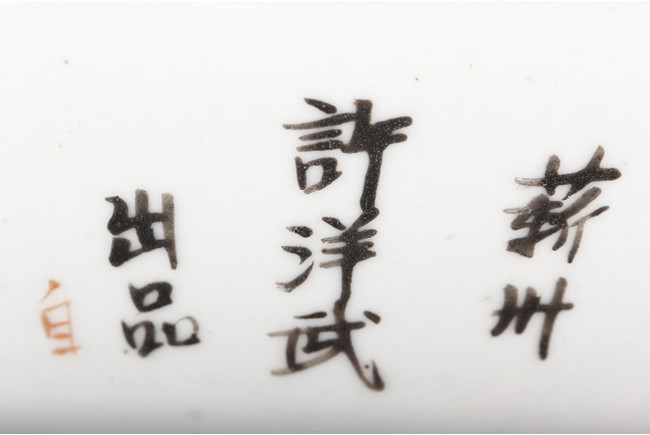 蘄州
許洋武
出品